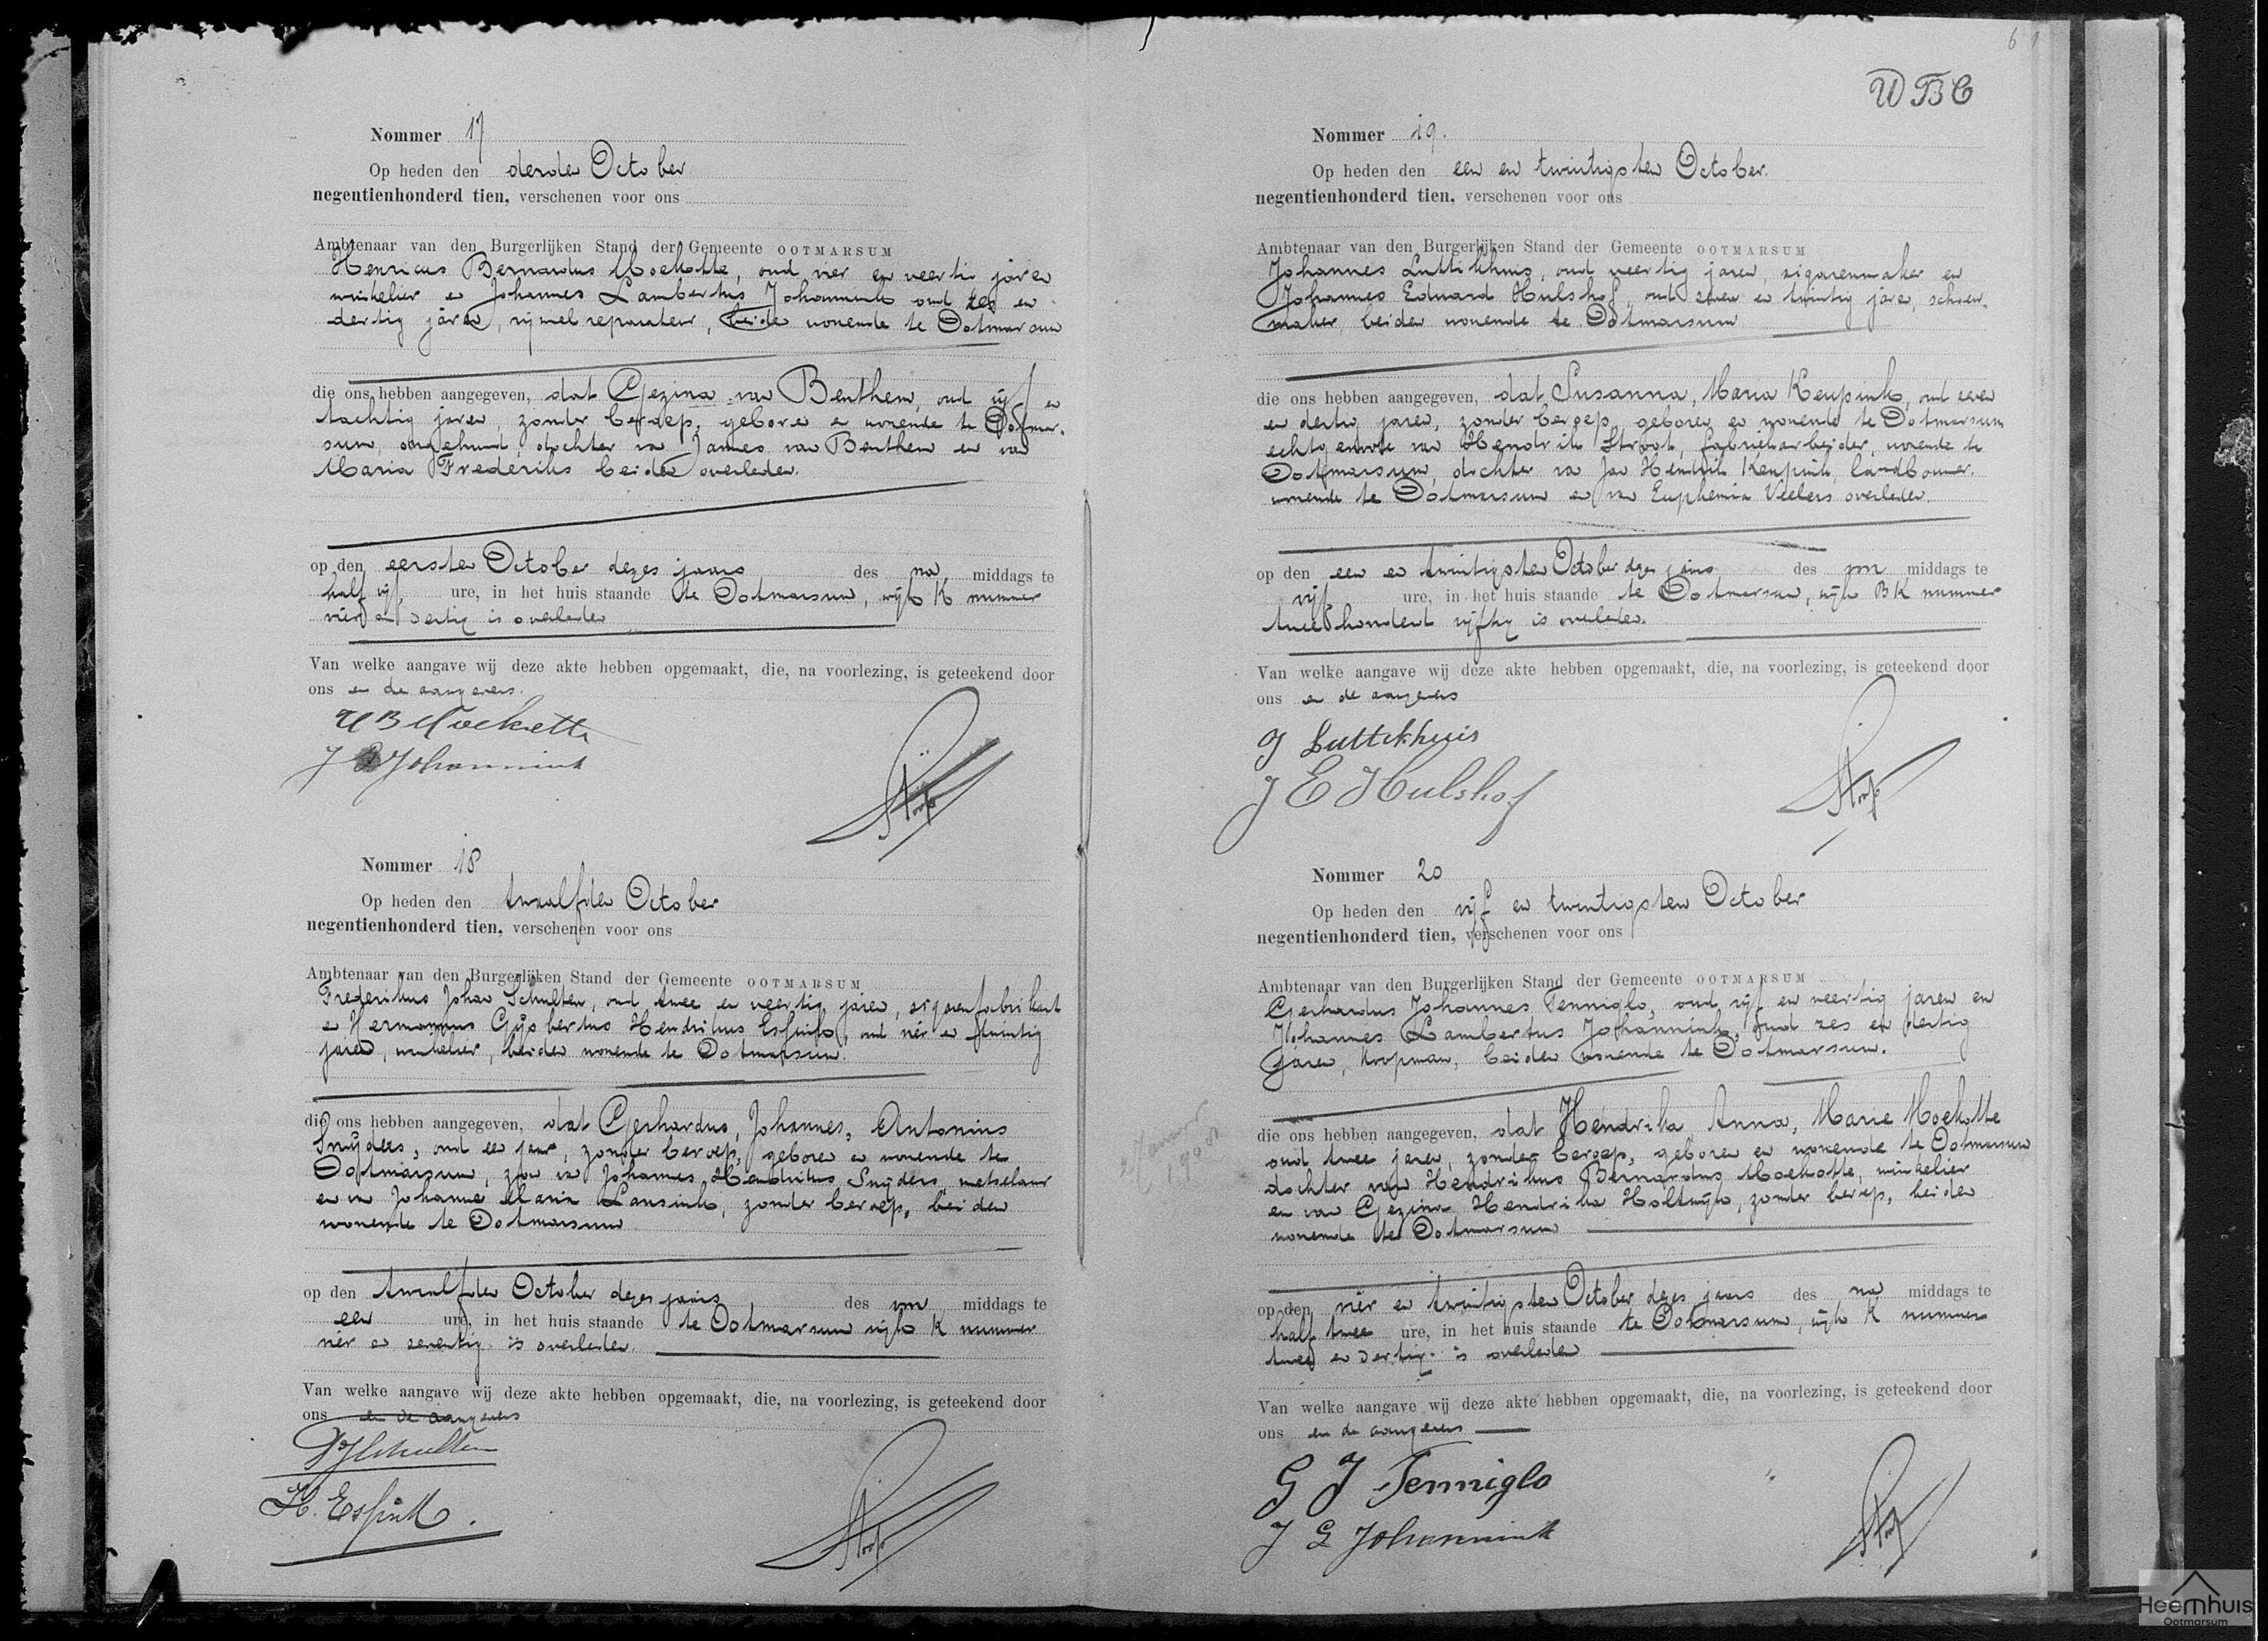 Nommer 17
Op heden den derden October
negentienhonderd tien, verschenen voor ons
Ambtenaar van den Burgerlijken Stand der Gemeente OOTMARSUM
Henricus Bernardus Moekotte, oud vier en veertig jaren
winkelier en Johannes Lambertus Johannink oud zes en
dertig jaren, rijwielreparateur, beiden wonende te Ootmarsum
die ons hebben aangegeven, dat Gezina van Benthem, oud vijf en
tachtig jaren, zonder beroep, geboren en wonende te Ootmar-
sum, ongehuwd, dochter van Jannes van Benthem en van
Maria Frederiks beiden overleden.
op den eersten October dezes jaars des na middags te
half vijf ure, in het huis staande te Ootmarsum, wijk K nummer
vier en dertig is overleden
Van welke aangave wij deze akte hebben opgemaakt, die, na voorlezing, is geteekend door
ons en de aangevers.
H B Moekotte
J L Johannink
Nommer 18
Op heden den twaalfden October
negentienhonderd tien, verschenen voor ons
Ambtenaar van den Burgerlijken Stand der Gemeente OOTMARSUM
Frederikus Johan Schulten, oud twee en veertig jaren, sigarenfabrikant
en Hermannus Gijsbertus Hendrikus Essink, oud vier en twintig
jaren, winkelier, beiden wonende te Ootmarsum.
die ons hebben aangegeven, dat Gerhardus, Johannes, Antonius
Snijders, oud een jaar, zonder beroep, geboren en wonende te
Ootmarsum, zoon van Johannes Hendrikus Snijders, metselaar
en van Johanna Maria Lansink, zonder beroep, beiden
wonende te Ootmarsum
op den twaalfden October dezes jaars des voor middags te
een ure, in het huis staande te Ootmarsum wijk K nummer
vier en zeventig is overleden.
Van welke aangave wij deze akte hebben opgemaakt, die, na voorlezing, is geteekend door
ons en de aangevers
FJSchulten
H. Essink.
6 1
WBC
Nommer 19.
Op heden den een en twintigsten October.
negentienhonderd tien, verschenen voor ons
Ambtenaar van den Burgerlijken Stand der Gemeente OOTMARSUM
Johannes Luttikhuis, oud veertig jaren, sigarenmaker en
Johannes Eduard Hulshof, oud zeven en twintig jaren, schoen-
maker, beiden wonende te Ootmarsum
die ons hebben aangegeven, dat Susanna, Maria Keupink, oud zeven
en dertig jaren, zonder beroep, geboren en wonende te Ootmarsum
echtgenoote van Hendrik Stroot, fabriekarbeider, wonende te
Ootmarsum, dochter van Jan Hendrik Keupink, landbouwer.
wonende te Ootmarsum en van Euphemia Veelers overleden.
op den een en twintigsten October dezes jaars des voor middags te
vijf ure, in het huis staande te Ootmarsum, wijk BK nummer
twee honderd vijftig is overleden.
Van welke aangave wij deze akte hebben opgemaakt, die, na voorlezing, is geteekend door
ons en de aangevers
J Luttikhuis
J E Hulshof
Nommer 20
Op heden den vijf en twintigsten October
negentienhonderd tien, verschenen voor ons
Ambtenaar van den Burgerlijken Stand der Gemeente OOTMARSUM
Gerhardus Johannes Tenniglo, oud vijf en veertig jaren en
Johannes Lambertus Johannink, oud zes en dertig
jaren, koopman, beiden wonende te Ootmarsum.
die ons hebben aangegeven, dat Hendrika Anna, Marie Moekotte
oud twee jaren, zonder beroep, geboren en wonende te Ootmarsum
dochter van Hendrikus Bernardus Moekotte, winkelier
en van Gezina Hendrika Holtwijk, zonder beroep, beiden
wonende te Ootmarsum
op den vier en twintigsten October dezes jaars des na middags te
half twee ure, in het huis staande te Ootmarsum, wijk K nummer
twee en dertig is overleden
Van welke aangave wij deze akte hebben opgemaakt, die, na voorlezing, is geteekend door
ons en de aangevers
G J Tenniglo
J L Johannink
Heemhuis
Ootmarsum